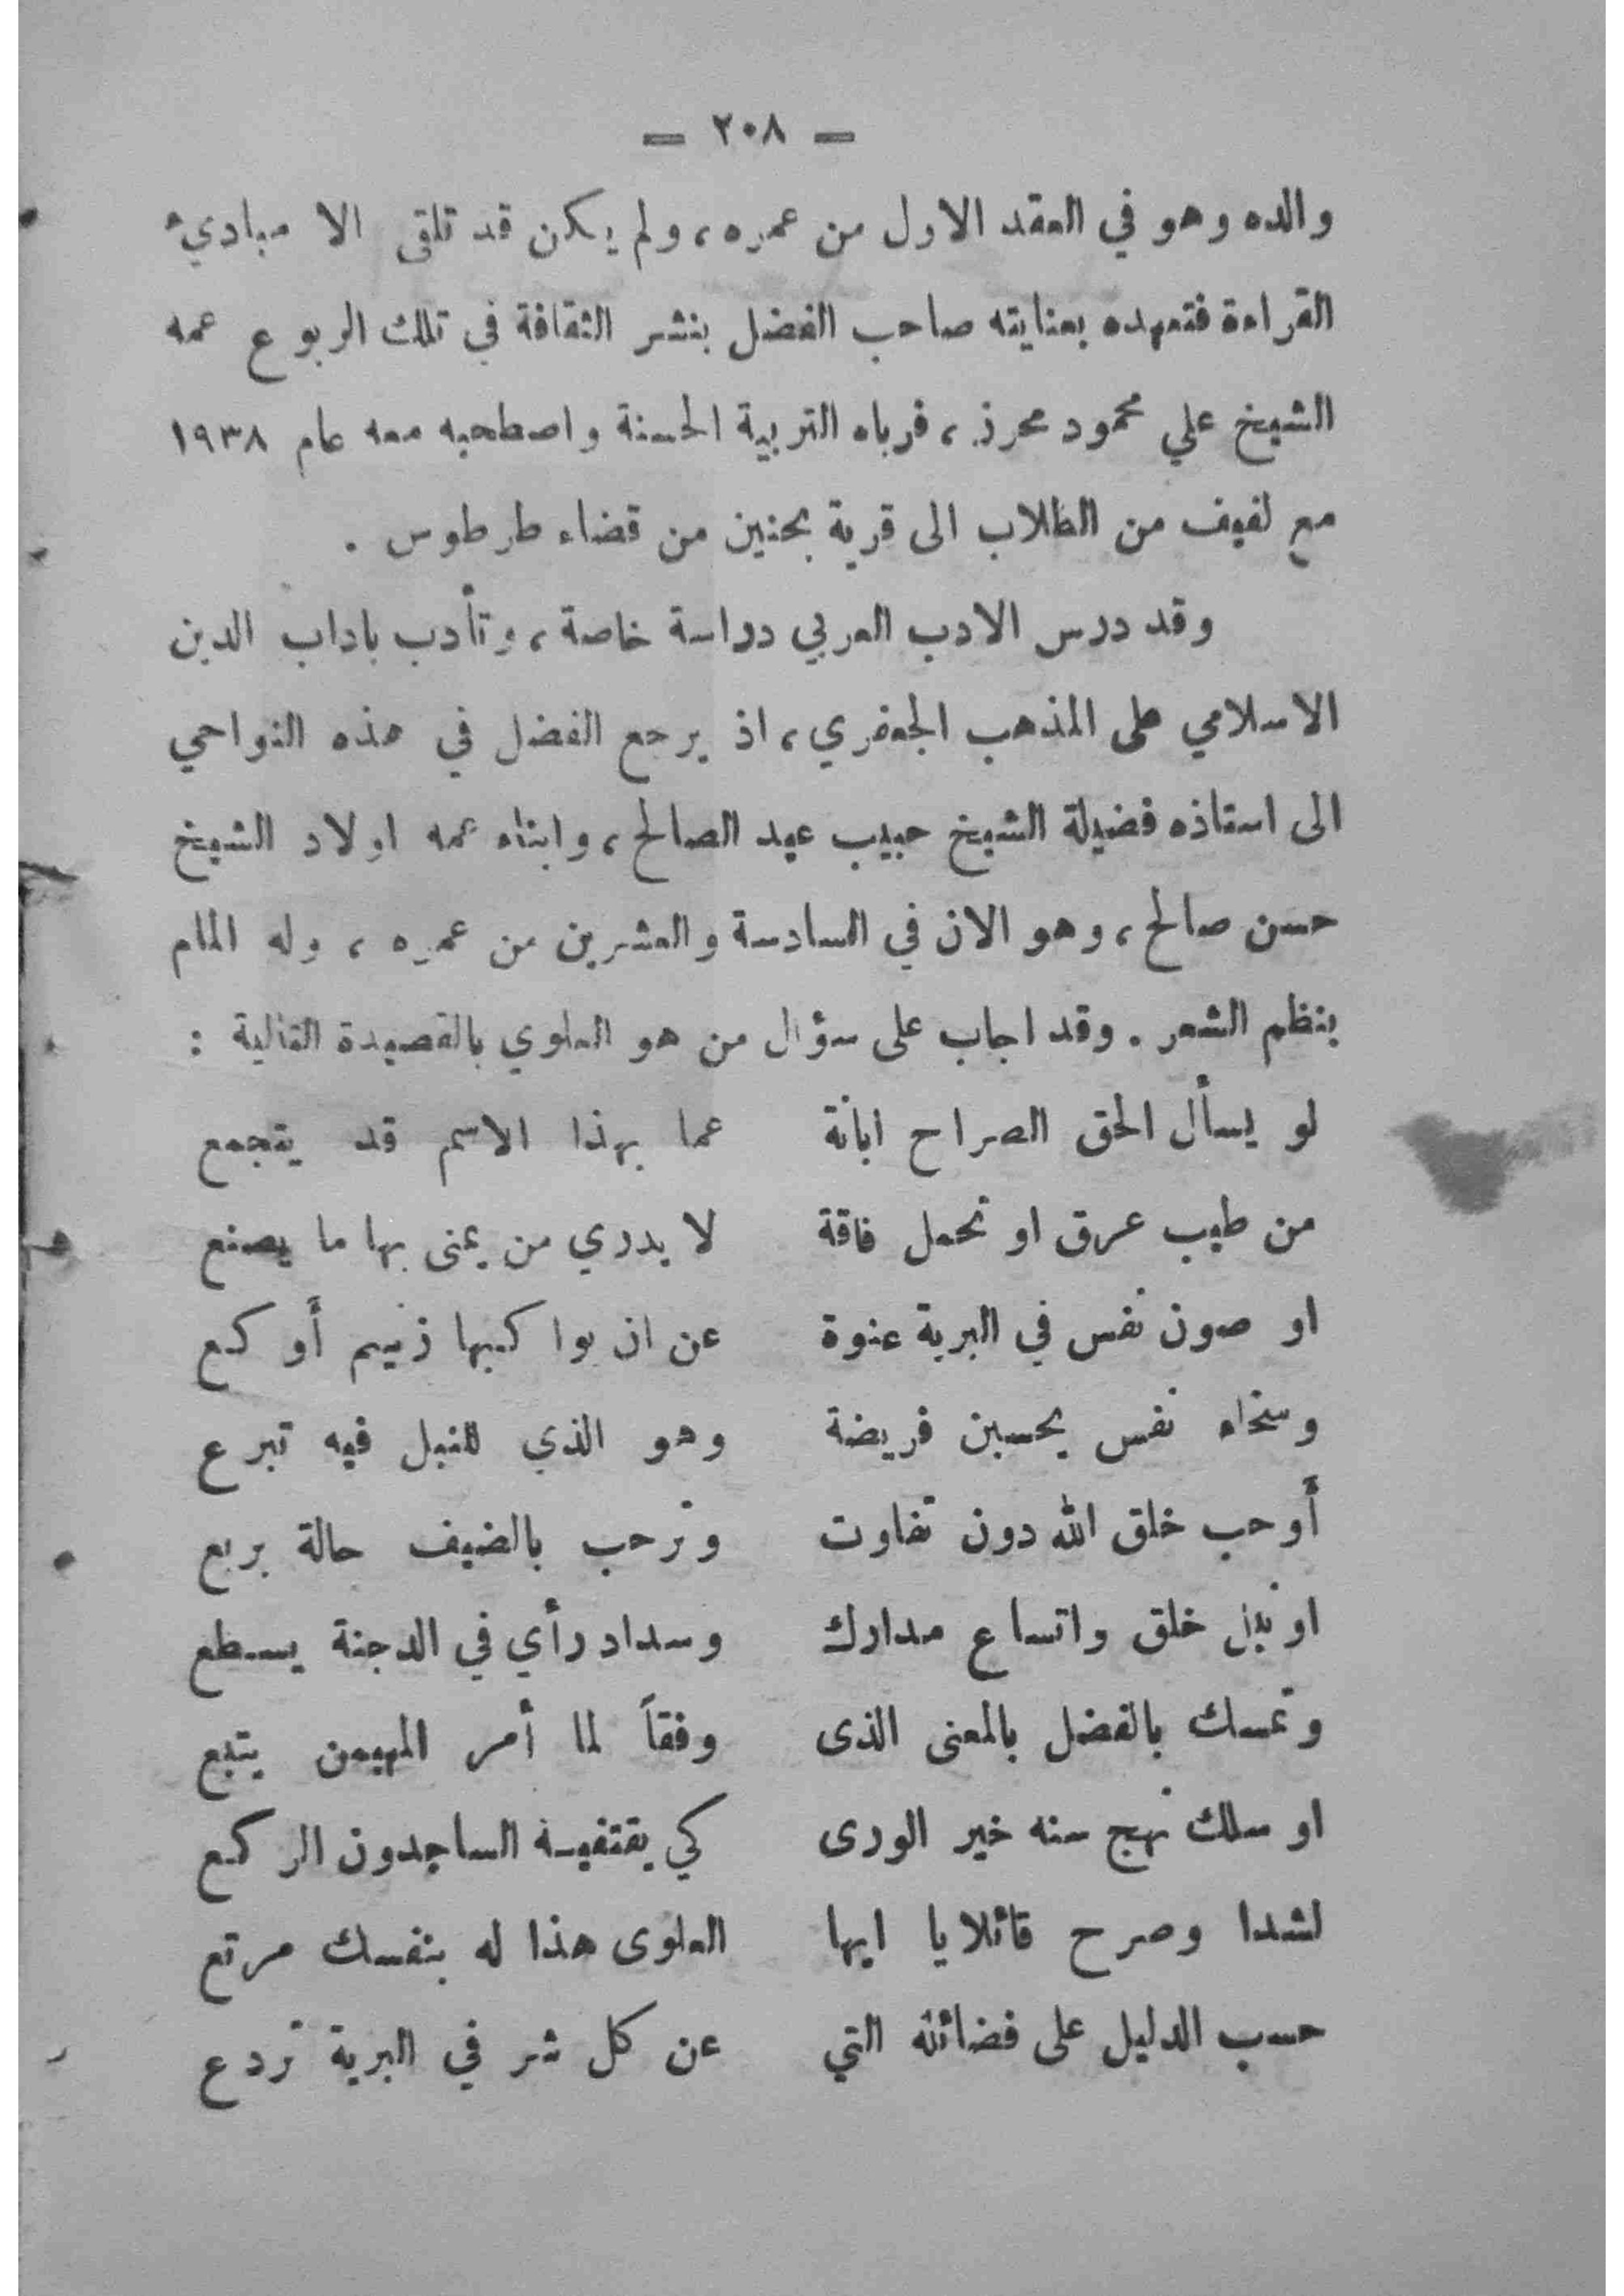 — ٢٠٨ —
والده وهو في العقد الاول من عمره، ولم يكن قد تلقى الا مباديء
القراءة فتعهده بعنايته صاحب الفضل بنشر الثقافة في تلك الربوع عمه
الشيخ علي محمود محرز، فرباه التربية الحسنة واصطحبه معه عام ١٩٣٨
مع لفيف من الطلاب الى قرية بحنين من قضاء طرطوس .
وقد درس الادب العربي دراسة خاصة، وتأدب باداب الدين
الاسلامي على المذهب الجعفري، اذ يرجع الفضل في هذه النواحي
الى استاذه فضيلة الشيخ حبيب عيد الصالح، وابناء عمه اولاد الشيخ
حسن صالح، وهو الان في السادسة والعشرين من عمره، وله المام
بنظم الشعر . وقد اجاب على سؤال من هو العلوي بالقصيدة التالية :
لو يسأل الحق الصراح ابانة عما بهذا الاسم قد يتجمع
من طيب عرق او تحمل فاقة لا يدري من يمنى بها ما يصنع
او صون نفس في البرية عنوة عن ان يواكبها زنيم أو كع
وسخاء نفس يحسبن فريضة وهو الذي للنبل فيه تبرع
أو حب خلق الله دون تفاوت وترحب بالضيف حالة يربع
او خلق واتساع مدارك وسداد رأي في الدجنة يسطع
وتمسك بالفضل بالمعنى الذى وفقاً لما أمر المهيمن يتبع
او سلك نهج سنه خير الورى كي يقتفيه الساجدون الركع
لشدا وصرح قائلا يا ايها العلوى هذا له بنفسك مرتع
حسب الدليل على فضائله التي عن كل شر في البرية تردع